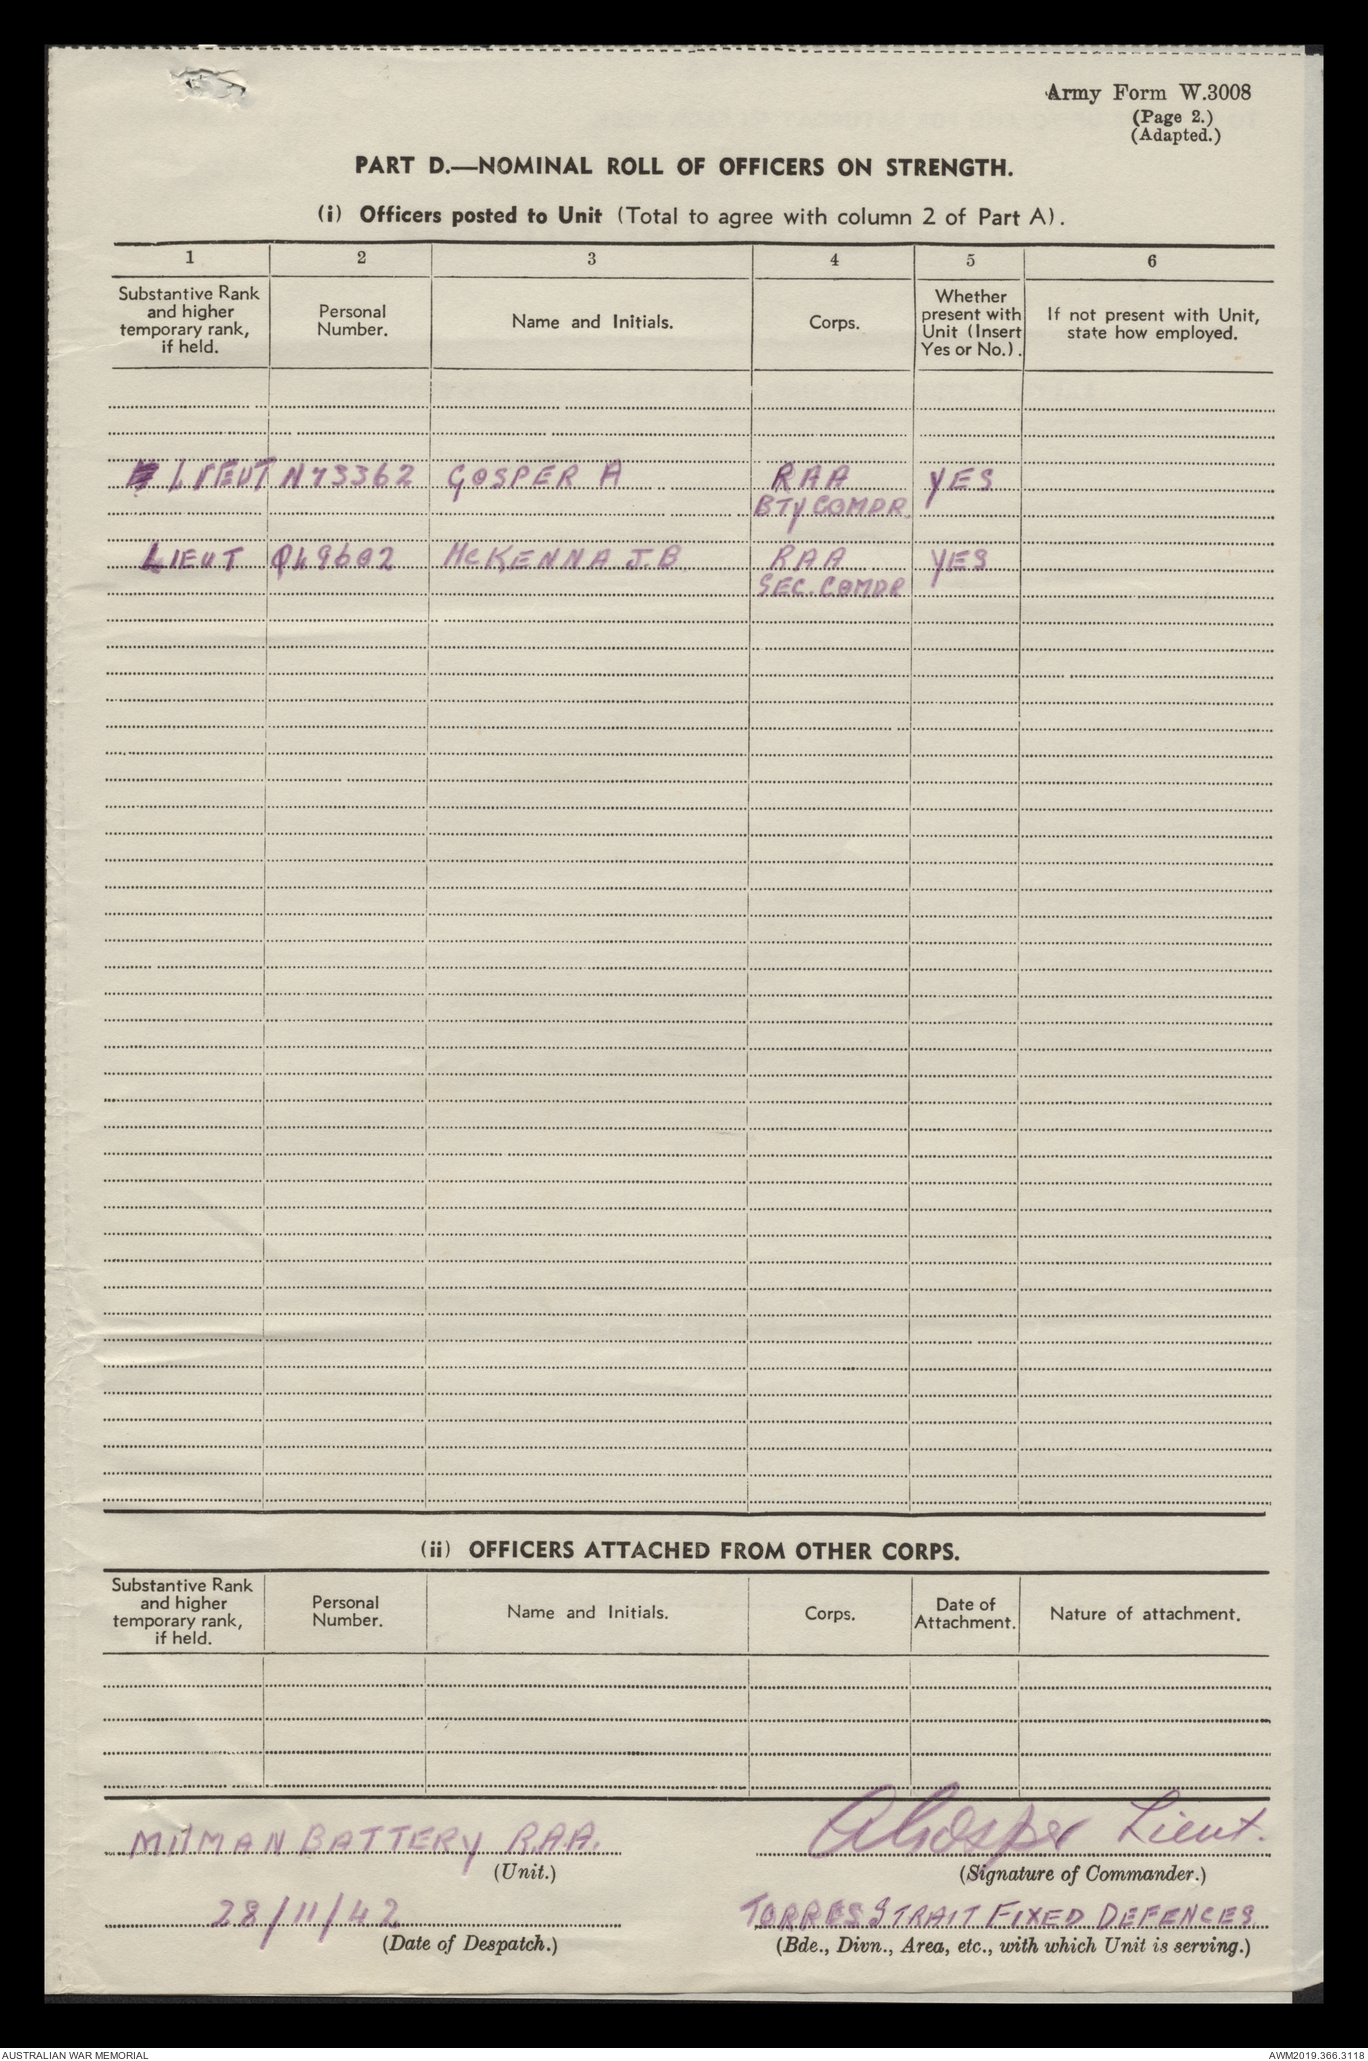 Army Form W.3008
(Page 2.)
(Adapted.)
PART D.—NOMINAL ROLL OF OFFICERS ON STRENGTH.
(i) Officers posted to Unit (Total to agree with column 2 of Part A).
1 2 3 4 5 6
Substantive Rank and higher temporary rank, if held. Personal Number. Name and Initials. Corps. Whether present with Unit (Insert Yes or No.). If not present with Unit, state how employed.
LIEUT N73362 GOSPER A RAA YES
BTY COMDR.
LIEUT Q49602 McKENNA J.B. RAA YES
SEC. COMDR
(ii) OFFICERS ATTACHED FROM OTHER CORPS.
Substantive Rank and higher temporary rank, if held. Personal Number. Name and Initials. Corps. Date of Attachment. Nature of attachment.
MILMAN BATTERY R.A.A. AGosper Lieut.
(Unit.) (Signature of Commander.)
28/11/42 TORRES STRAIT FIXED DEFENCES
(Date of Despatch.) (Bde., Divn., Area, etc., with which Unit is serving.)
AUSTRALIAN WAR MEMORIAL AWM2019.366.3118